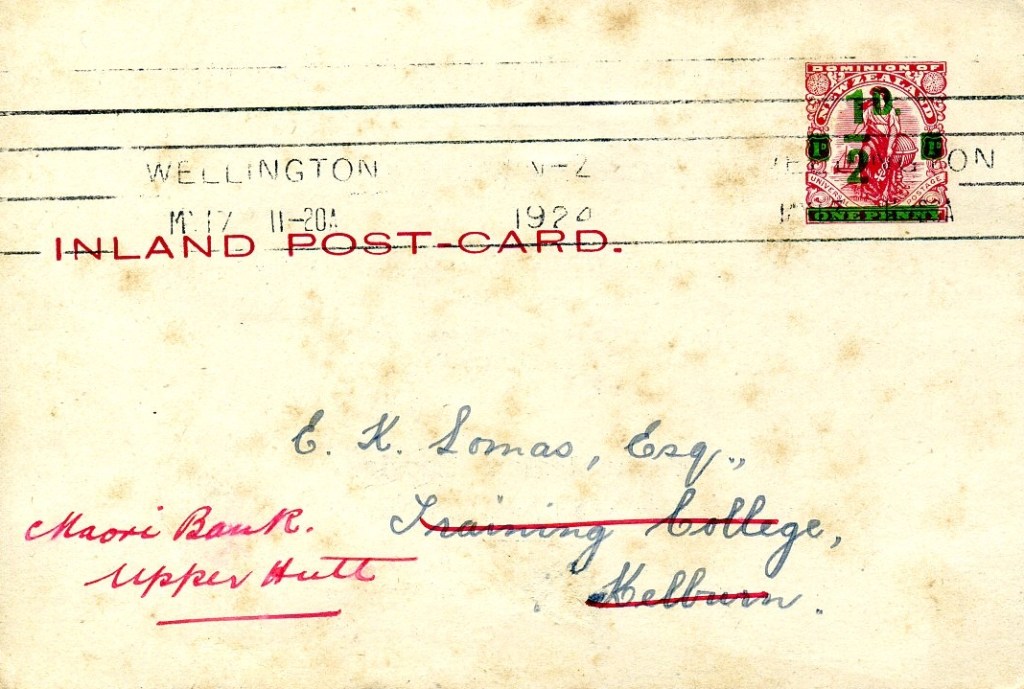 DOMINION OF
NEW ZEALAND
1D.
2
UNIVERSAL POSTAGE
ONE PENNY
WELLINGTON N-Z
17 11-20A
INLAND POST-CARD.
E. K. Lomas, Esq.,
Training College,
Kelburn.
Maori Bank.
Upper Hutt